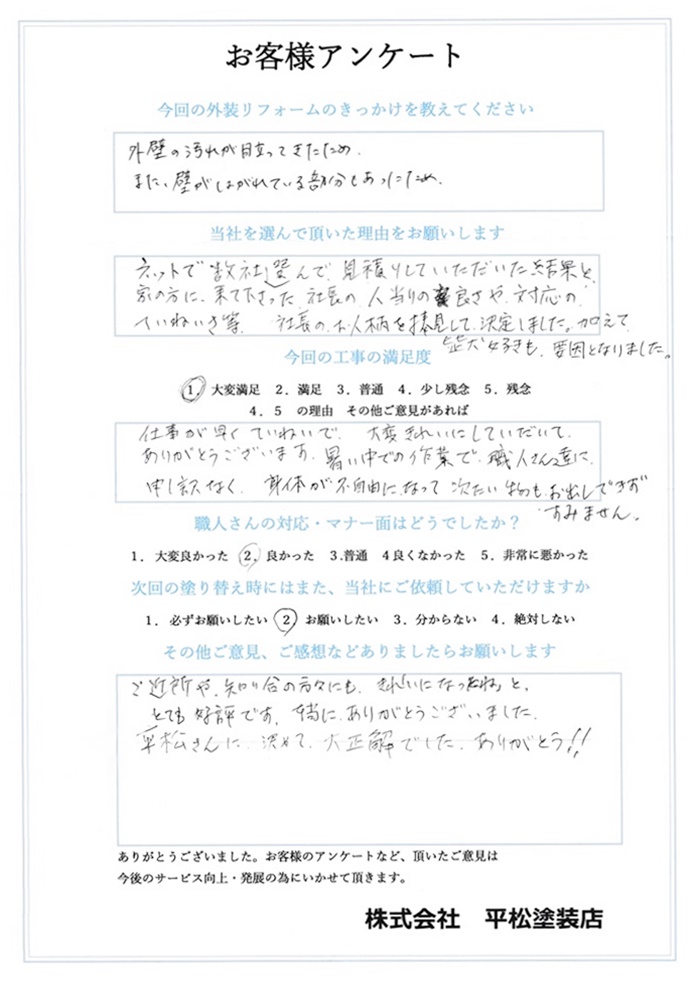 お客様アンケート
今回の外装リフォームのきっかけを教えてください
外壁の汚れが目立ってきたため.
また、壁がはがれている部分もあったため.
当社を選んで頂いた理由をお願いします
ネットで数社選んで、見積りしていただいた結果と、
家の方に、来て下さった社長の人当りの良さや、対応の
ていねいさ等. 社長の、お人柄を拝見して、決定しました。加えて、
柴犬好きも、要因となりました。
今回の工事の満足度
1. 大変満足 2. 満足 3. 普通 4. 少し残念 5. 残念
4. 5 の理由 その他ご意見があれば
仕事が早くていねいで、大変きれいにしていだいて、
ありがとうございます. 暑い中での作業で、職人さん達に、
申し訳なく、身体が不自由になって冷たい物もお出しできず
すみません。
職人さんの対応・マナー面はどうでしたか？
1. 大変良かった 2. 良かった 3.普通 4良くなかった 5. 非常に悪かった
次回の塗り替え時にはまた、当社にご依頼していただけますか
1. 必ずお願いしたい 2 お願いしたい 3. 分からない 4. 絶対しない
その他ご意見、ご感想などありましたらお願いします
ご近所や、知り合の方々にも、きれいになったね」と、
とても好評です。 ありがとうございました.
平松さんに、決めて、大正解でした. ありがとう!!
ありがとうございました。お客様のアンケートなど、頂いたご意見は
今後のサービス向上・発展の為にいかせて頂きます。
株式会社 平松塗装店